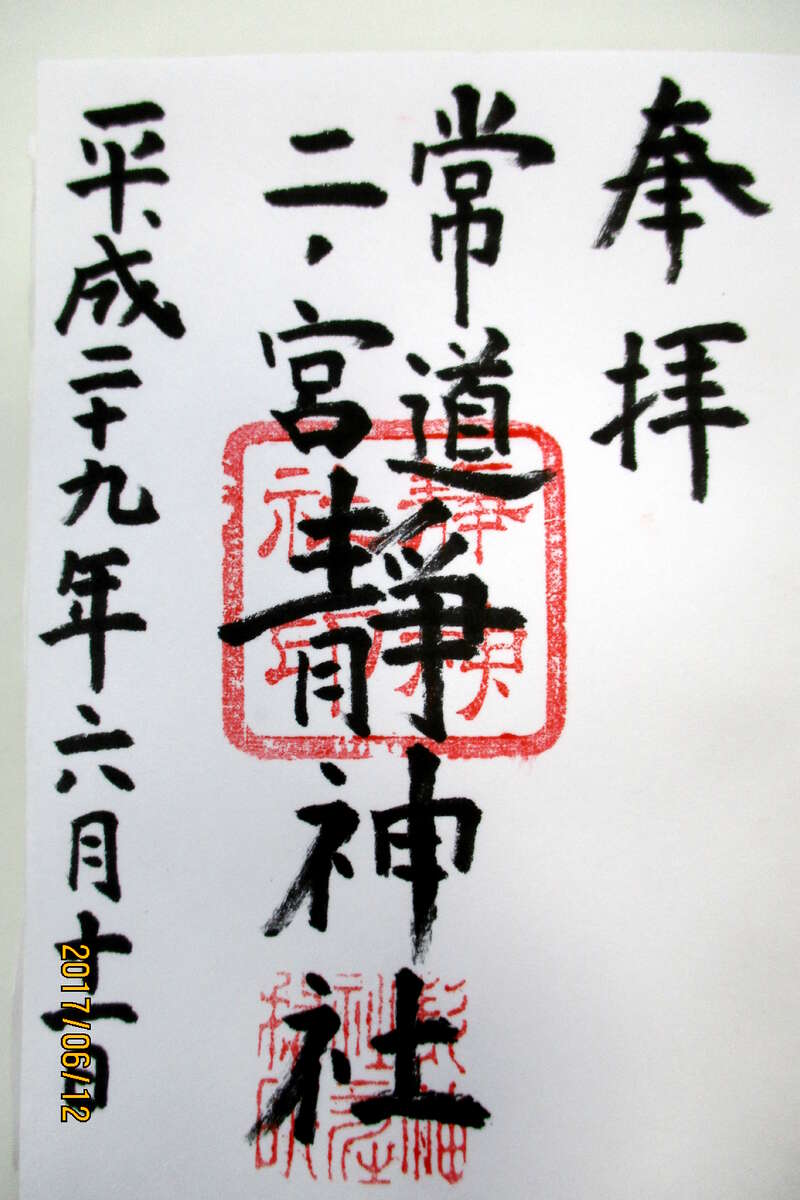 奉拝
常道
二ノ宮
靜神社
平成二十九年六月十一日
2017/06/12